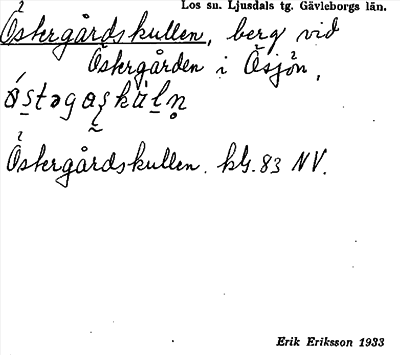 Los sn. Ljusdals tg. Gävleborgs län.
Östergårdskullen, berg vid
Östergården i Åsjön,
Östergårdskullen. kbl. 83 NV.
Erik Eriksson 1933